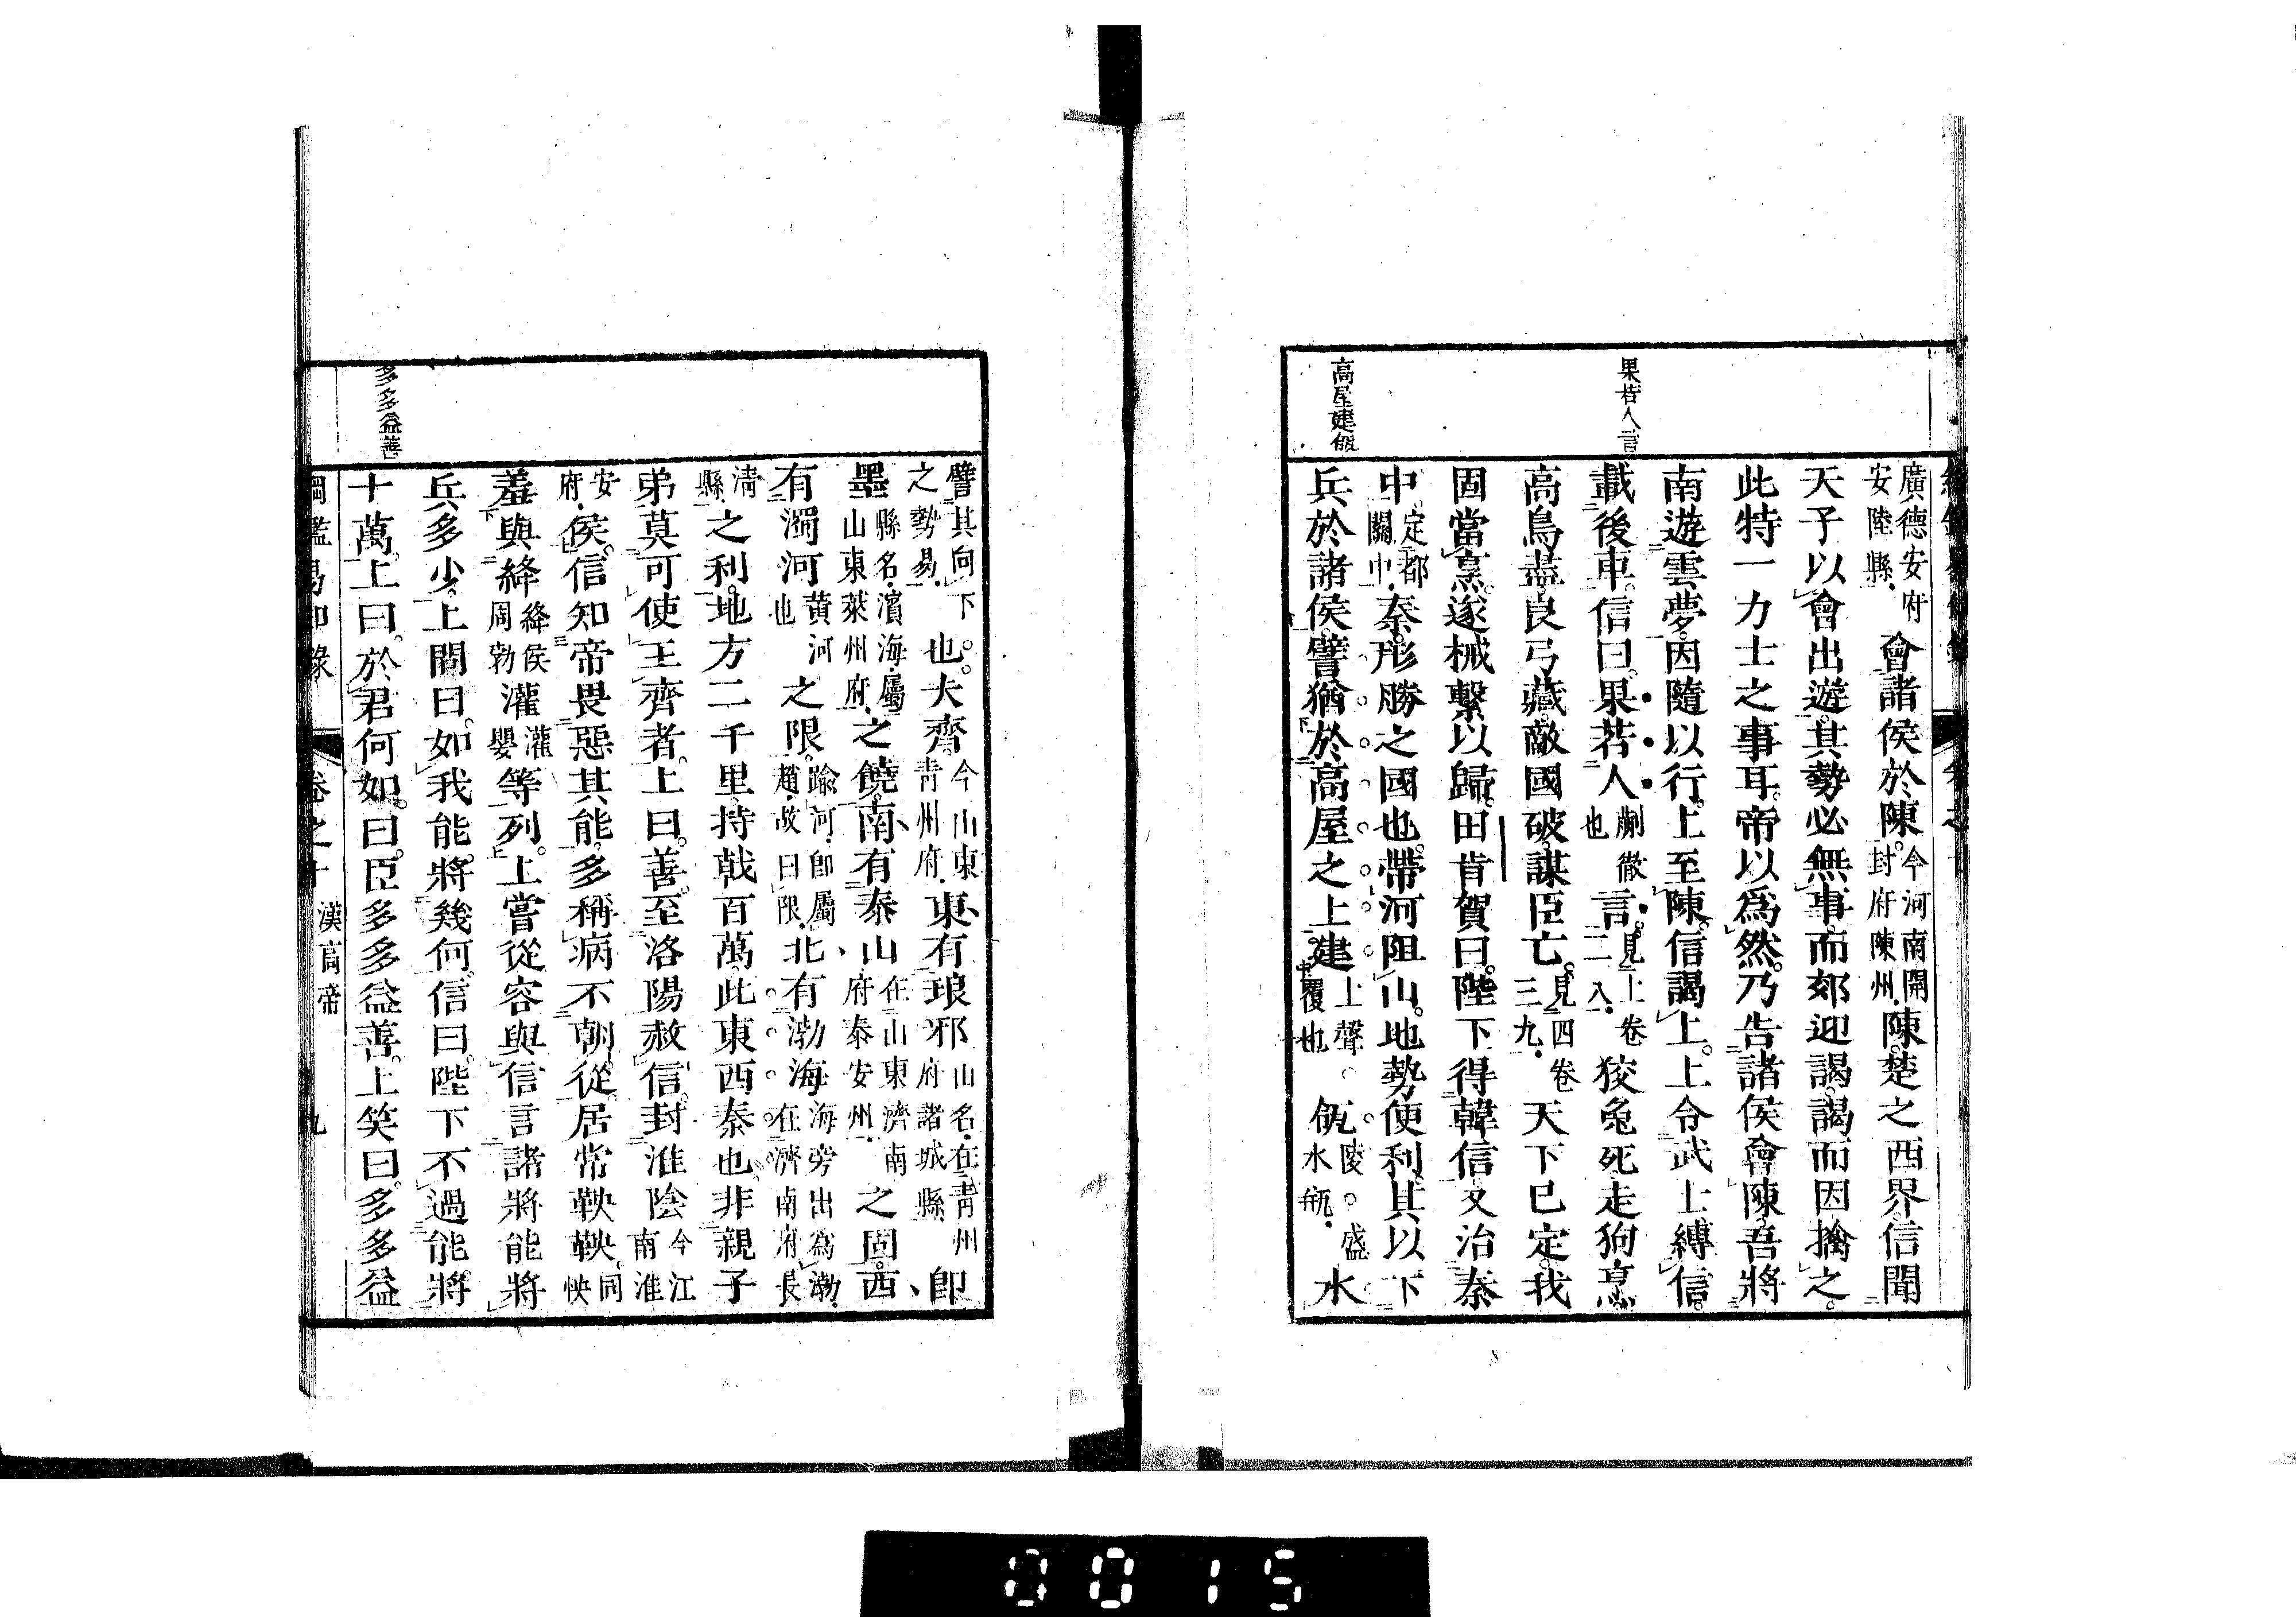 果若人言
高屋建瓴
廣德安府安陸縣會諸侯於陳今河南開封府陳州陳楚之西界信聞
天子以會出遊其勢必無事而郊迎謁謁而因擒之
此特一力士之事耳帝以爲然乃告諸侯會陳吾將
南遊雲夢因隨以行上至陳信謁上上令武士縛信
載後車信曰果若人蒯徹也言見上卷二八狡兔死走狗烹
高鳥盡良弓藏敵國破謀臣亡見四卷三九天下已定我
固當烹遂械繫以歸田肯賀曰陛下得韓信又治秦
中定都關中秦形勝之國也帶河阻山地勢便利其以下
兵於諸侯譬猶於高屋之上建上聲覆也瓴陵盛水瓶水
多多益善
譬其向下之勢易也夫齊今山東青州府東有琅邪山名在青州府諸城縣即
墨縣名濱海屬山東萊州府之饒南有泰山在山東濟南府泰安州之固西
有濁河黄河也之限踰河即屬趙故曰限北有渤海海旁出為渤在濟南府長
淸縣之利地方二千里持戟百萬此東西秦也非親子
弟莫可使王齊者上曰善至洛陽赦信封淮陰今江南淮
安府侯信知帝畏惡其能多稱病不朝從居常鞅鞅同怏
羞與絳絳侯周勃灌灌嬰等列上嘗從容與信言諸將能將
兵多少上問曰如我能將幾何信曰陛下不過能將
十萬上曰於君何如曰臣多多益善上笑曰多多益
卷之十 漢高帝 九
0015